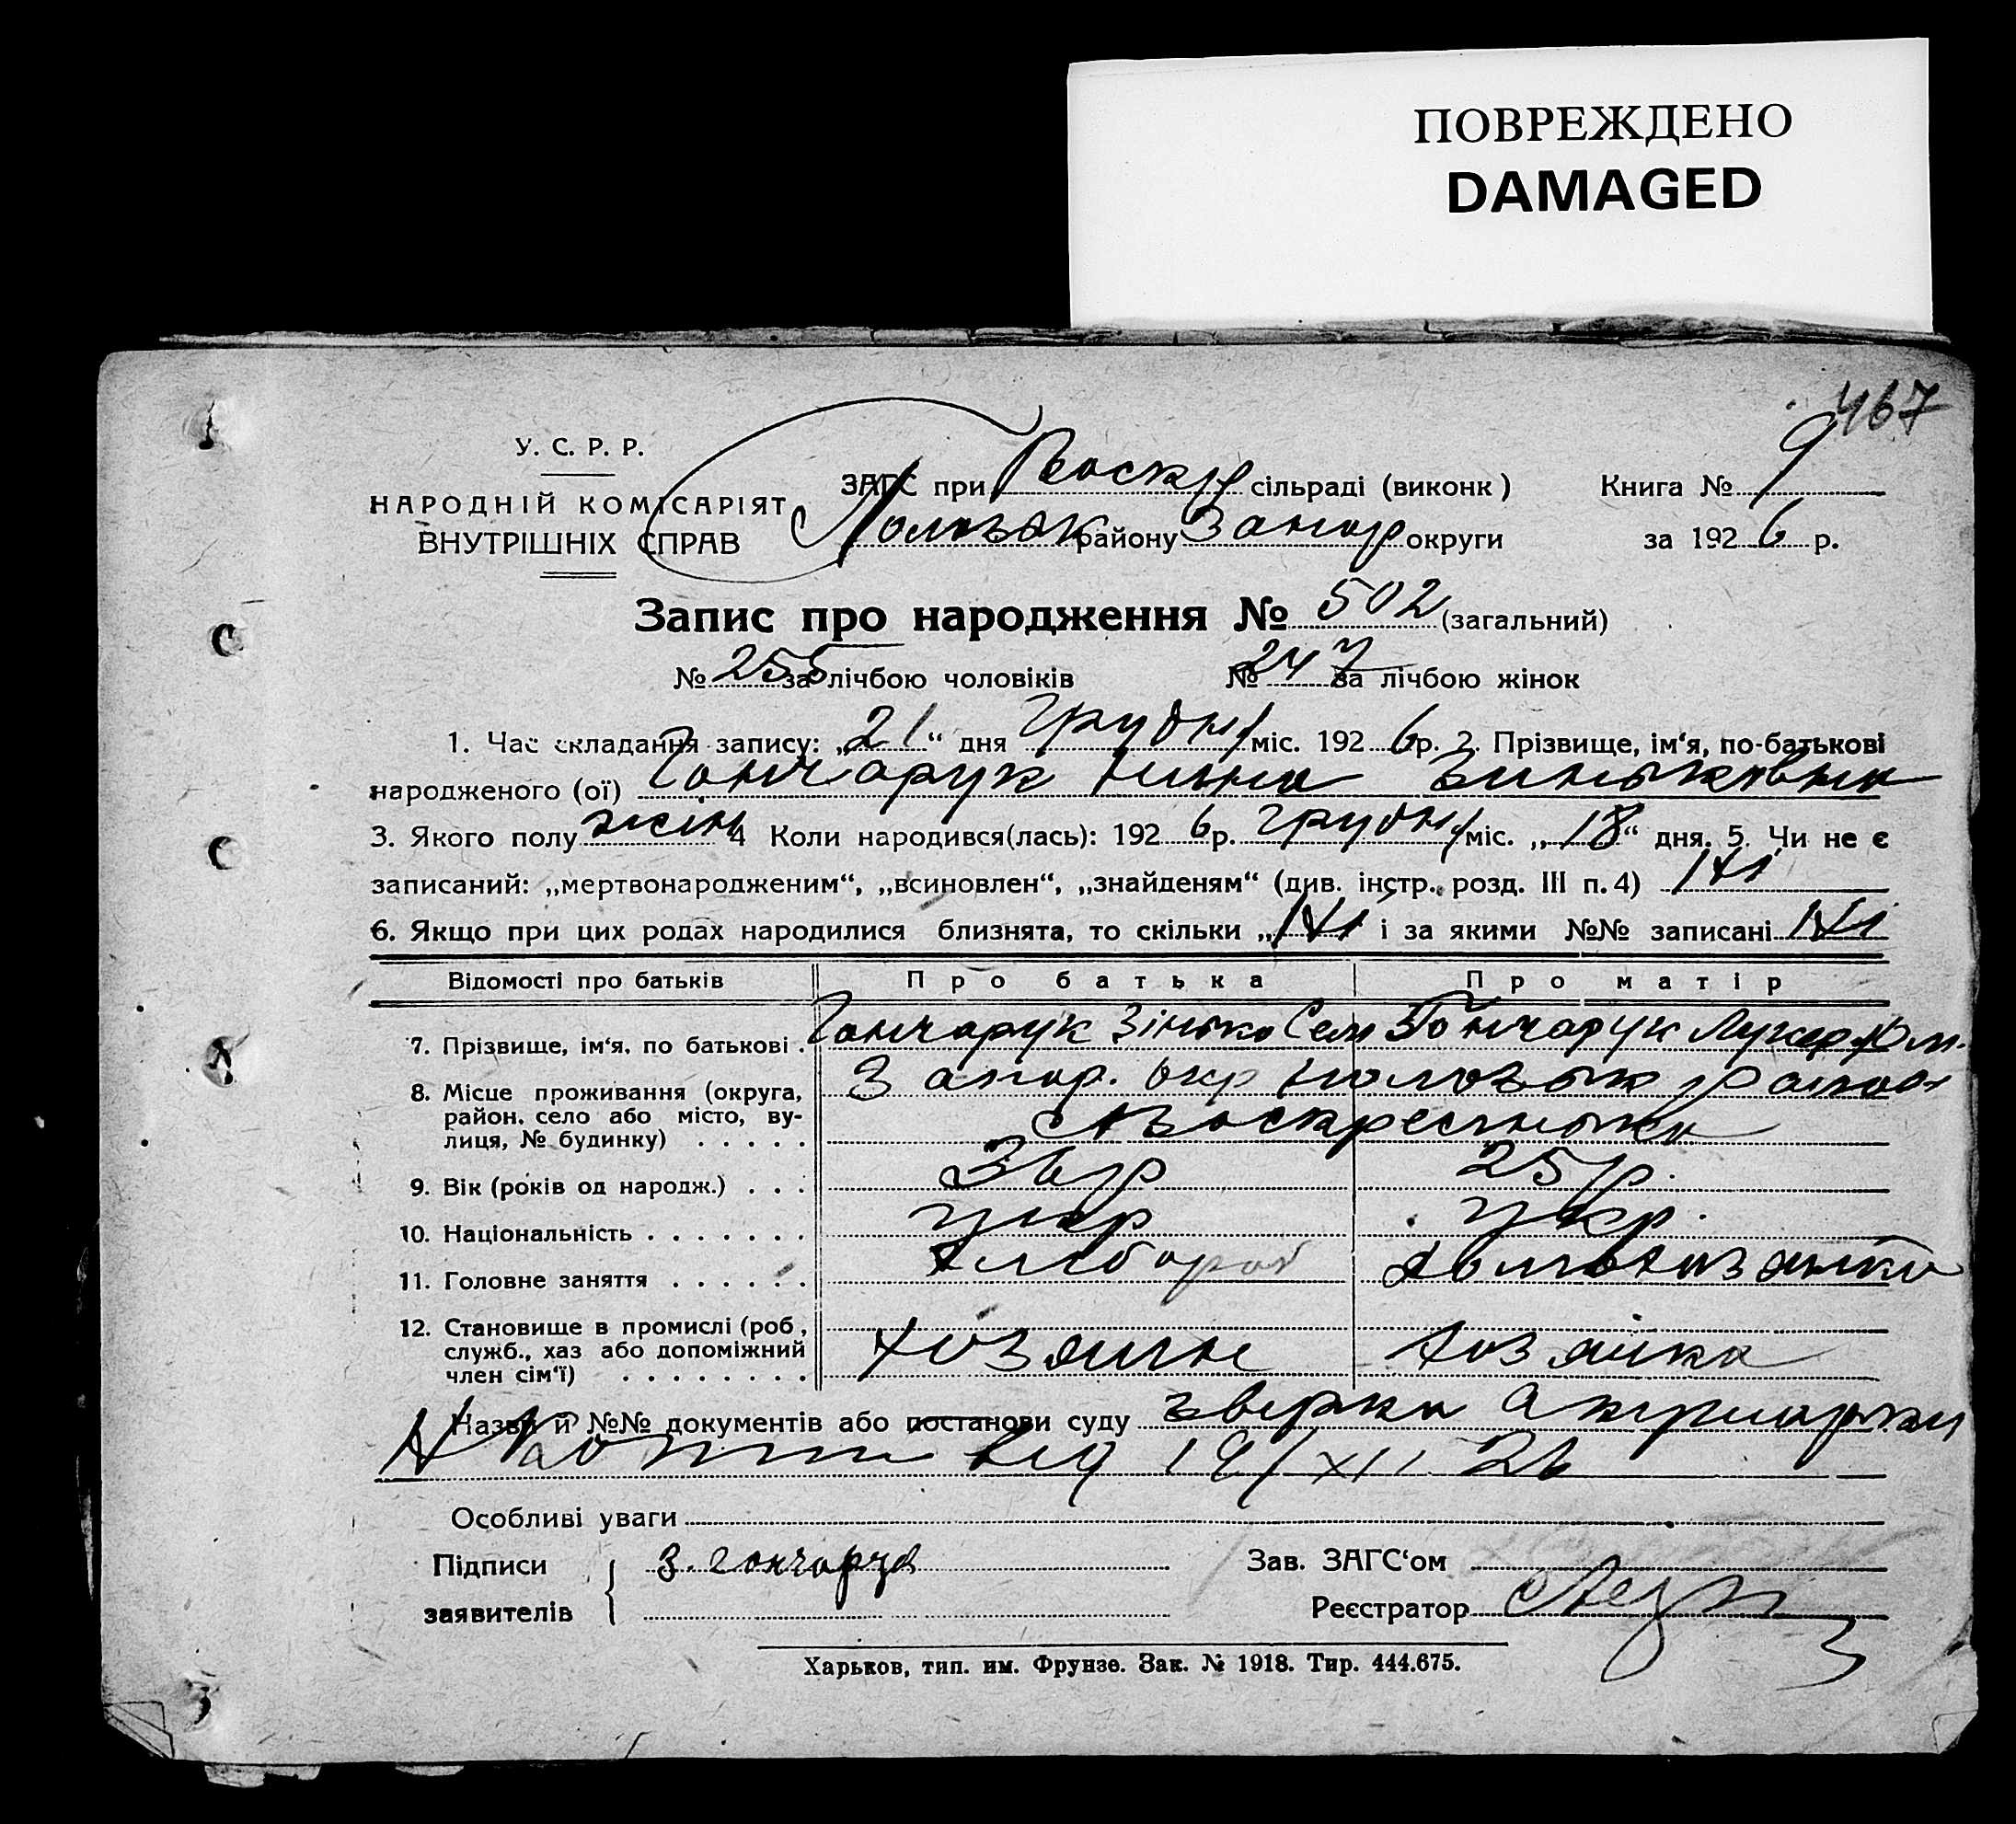 ПОВРЕЖДЕНО
DAMAGED
467
У. С. Р. Р.
НАРОДНІЙ КОМІСАРІЯТ
ВНУТРІШНІХ СПРАВ
ЗАГС при Воскр сільраді (виконк) Книга № 9
району Запор округи за 1926 р.
Запис про народження № 502 (загальний)
№ 255 за лічбою чоловіків № 247 за лічбою жінок
1. Час складання запису: „21“ дня Грудня міс. 1926 р. 2. Прізвище, ім‘я, по-батькові
народженого (ої) Гончарук Нина Зиньківна
3. Якого полу жін 4 Коли народився(лась): 1926 р. Грудня міс. „18“ дня. 5. Чи не є
записаний: „мертвонародженим“, „всиновлен“, „знайденям“ (див. інстр., розд. III п. 4) Ні
6. Якщо при цих родах народилися близнята, то скільки „Ні і за якими №№ записані Ні
Відомості про батьків Про батька Про матір
7. Прізвище, ім‘я, по батькові . Гончарук Зінько Сем Гончарук Лукер
8. Місце проживання (округа, Запор. окр
район, село або місто, ву-
лиця, № будинку) . . . . . Воскресенька
9. Вік (років од народж.) . . . 36 р 25 р.
10. Національність . . . . . . . укр укр.
11. Головне заняття . . . . . . Хлібороб домохозяйка
12. Становище в промислі (роб.,
служб., хаз або допоміжний хозяин хозяйка
член сім‘ї) . . . . . . . .
Назви й №№ документів або постанови суду
від 19/XII 26
Особливі уваги
Підписи З. гончарук Зав. ЗАГС‘ом
заявителів Реєстратор
Харьков, тип. им. Фрунзе. Зак. № 1918. Тир. 444.675.